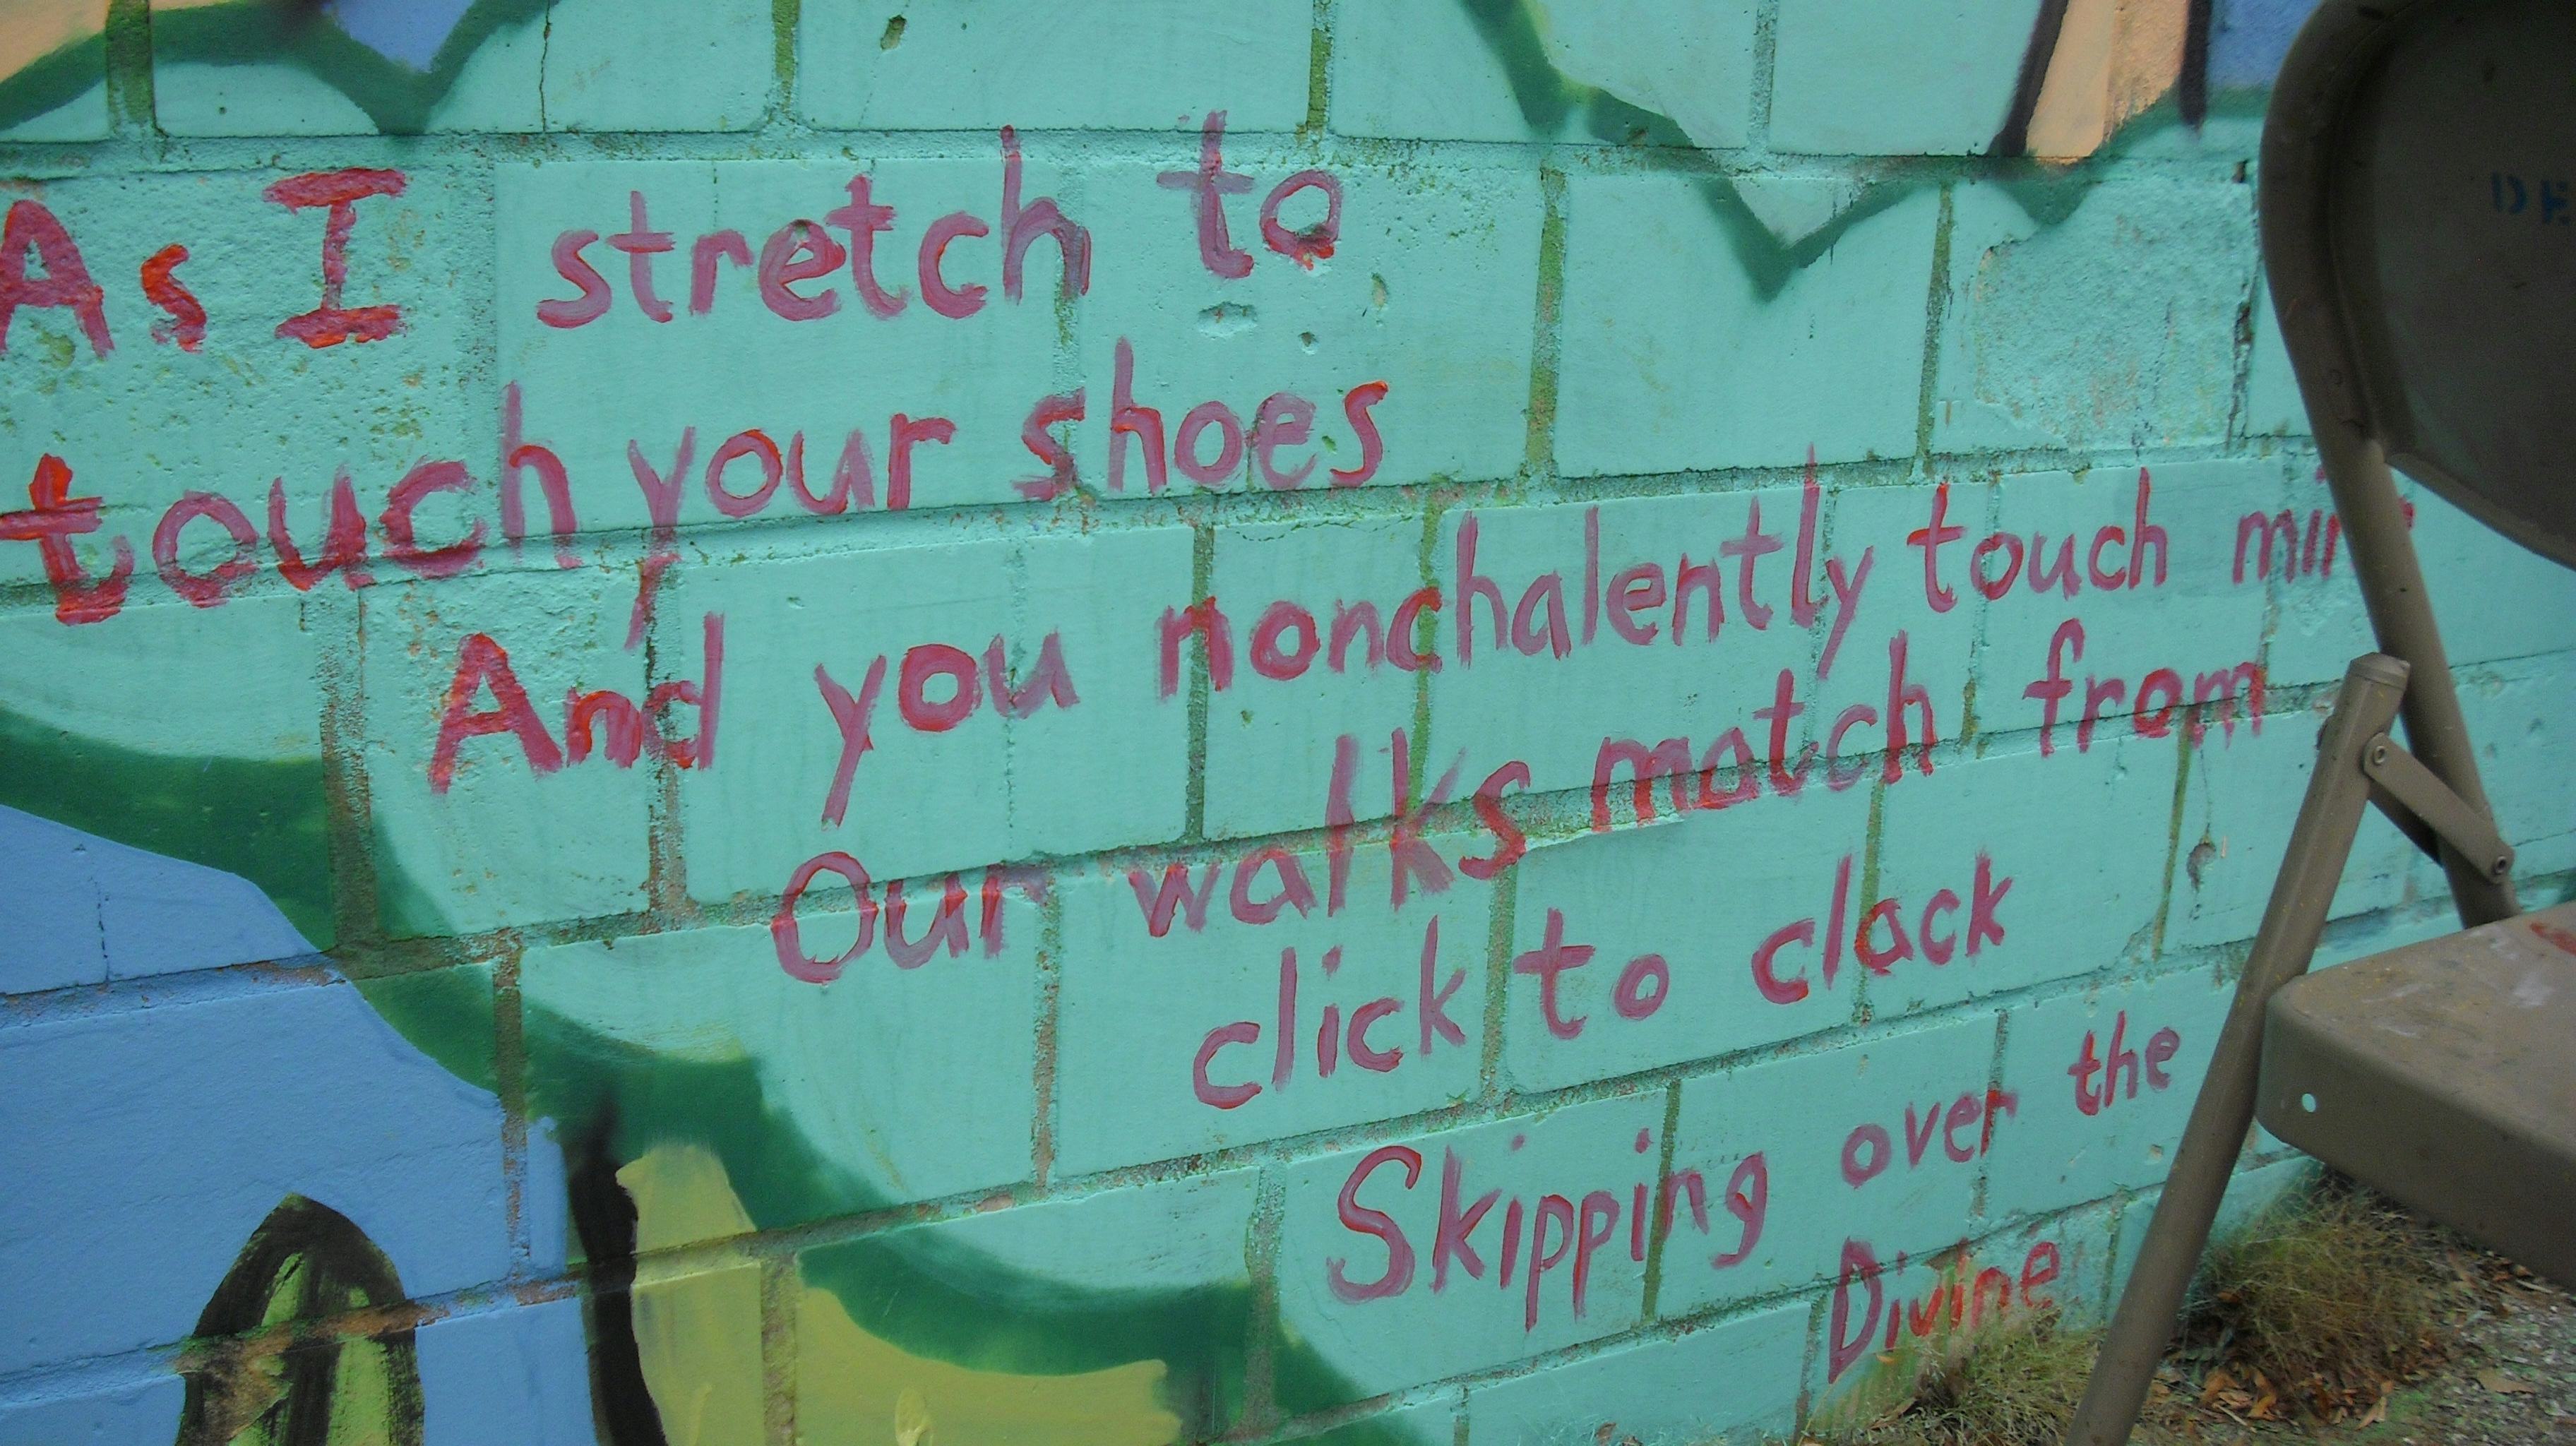 As I stretch to
touch your shoes
And you nonchalently touch
Our walks match from
click to clack
Skipping over the
Divine